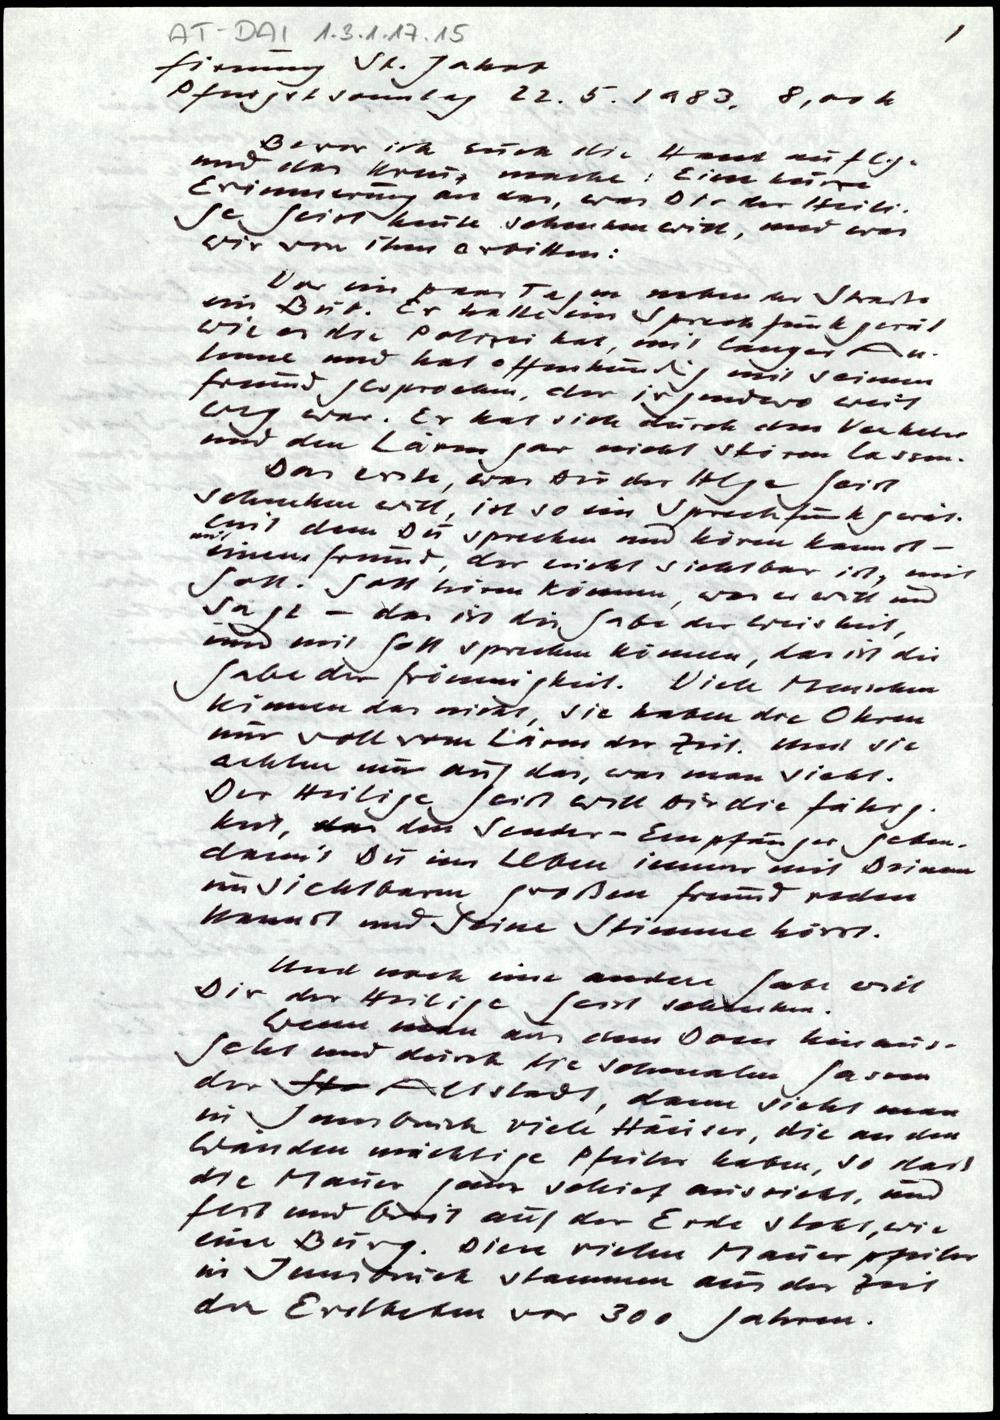 AT-DAI 1.3.1.17.15
1
Firmung St. Jakob
Pfingstsonntag 22. 5. 1983, 8,00 h
Bevor ich euch die Hand aufleg.
und das Kreuz mache: Eine kurze
Erinnerung an das, was Dir der Heili-
ge Geist heute schenken will, und was
wir von ihm erbitten:
Vor ein paar Tagen neben der Straße
ein Bub. Er hatte ein Sprechfunkgerät
wie es die Polizei hat, mit langer An-
tenne und hat offenkundig mit seinem
Freund gesprochen, der irgendwo weit
weg war. Er hat sich durch den Verkehr
und den Lärm gar nicht stören lassen.
Das erste, was Dir der Hlge Geist
schenken will, ist so ein Sprechfunkgerät.
mit dem Du sprechen und hören kannst –
mit einem Freund, der nicht sichtbar ist, mit
Gott. Gott hören können, was er will und
sagt – das ist die Gabe der Weisheit,
und mit Gott sprechen können, das ist die
Gabe der Frömmigkeit. Viele Menschen
können das nicht, sie haben die Ohren
nur voll vom Lärm der Zeit. Und sie
achten nur auf das, was man sieht.
Der Heilige Geist will Dir die Fähig-
keit, das den Sender-Empfänger geben.
damit Du im Leben immer mit Deinem
unsichtbaren großen Freund reden
kannst und Seine Stimme hörst.
Und noch eine andere Gabe will
Dir der Heilige Geist schenken.
Wenn man aus dem Dom hinaus-
geht und durch die schmalen Gassen
der Altstadt, dann sieht man
in Innsbruck viele Häuser, die an den
Wänden mächtige Pfeiler haben, so dass
die Mauer ganz schief aussieht, und
fest und breit auf der Erde steht, wie
eine Burg. Diese vielen Mauerpfeiler
in Innsbruck stammen aus der Zeit
der Erdbeben vor 300 Jahren.